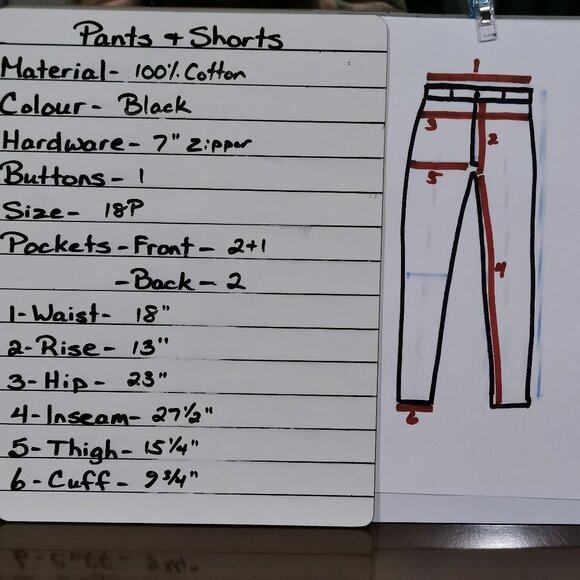 Pants + Shorts
Material- 100% Cotton
Colour- Black
Hardware- 7" Zipper
Buttons- 1
Size- 18P
Pockets-Front- 2+1
-Back- 2
1-Waist- 18"
2-Rise- 13"
3-Hip- 23"
4-Inseam- 27½"
5-Thigh- 15¼"
6-Cuff- 9¾"
1
3
2
5
4
6